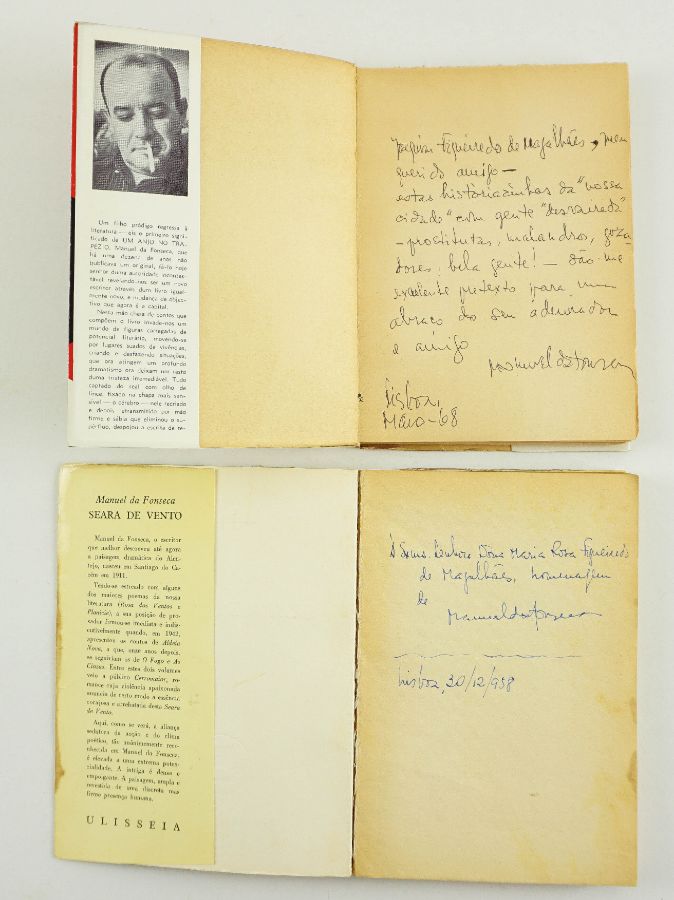 Um filho pródigo regressa à
literatura — eis o primeiro signi-
ficado de UM ANJO NO TRA-
PÉZIO. Manuel da Fonseca, que
há uma dezena de anos não
publicava um original, fá-lo hoje
senhor duma autoridade incontes-
tável revelando-nos ser um novo
escritor através dum livro igual-
mente novo, e mudança de objec-
tivo que agora é a capital.
Nesta mão cheia de contos que
compõem o livro invade-nos um
mundo de figuras carregadas de
potencial literário, movendo-se
por lugares suados de vivências,
criando e desfazendo situações,
que ora atingem um profundo
dramatismo ora deixam um rasto
duma tristeza irremediável. Tudo
captado do real com olho de
lince, fixado na chapa mais sen-
sível — o cérebro — nele recriado
e depois transmitido por mão
firme e sábia que eliminou o su-
pérfluo, despojou a escrita de re-
Joaquim Figueiredo de Magalhães, meu
querido amigo —
estas historiazinhas da "nossa
cidade" com gente "desvairada"
— prostitutas, malandros, goza-
dores, bela gente! — dão-me
excelente pretexto para um
abraço do seu admirador
e amigo
Manuel da Fonseca
Lisboa,
Maio-68
Manuel da Fonseca
SEARA DE VENTO
Manuel da Fonseca, o escritor
que melhor descreveu até agora
a paisagem dramática do Alen-
tejo, nasceu em Santiago do Ca-
cém em 1911.
Tendo-se estreado com alguns
dos maiores poemas da nossa
literatura (Rosa dos Ventos e
Planície), a sua posição de pro-
sador firmou-se imediata e indis-
cutivelmente quando, em 1942,
apresentou os contos de Aldeia
Nova, a que, onze anos depois,
se seguiram os de O Fogo e As
Cinzas. Entre estes dois volumes
veio a público Cerromaior, ro-
mance cuja violência apaixonada
anuncia de certo modo a essência
corajosa e arrebatada desta Seara
de Vento.
Aqui, como se verá, a aliança
sedutora da acção e do clima
poético, tão unânimemente reco-
nhecida em Manuel da Fonseca,
é elevada a uma extrema poten-
cialidade. A intriga é densa e
empolgante. A paisagem, ampla e
revestida de uma discreta mas
firme presença humana.
ULISSEIA
À Sma. Senhora Dona Maria Rosa Figueiredo
de Magalhães, homenagem
de
Manuel da Fonseca
Lisboa, 30/12/958